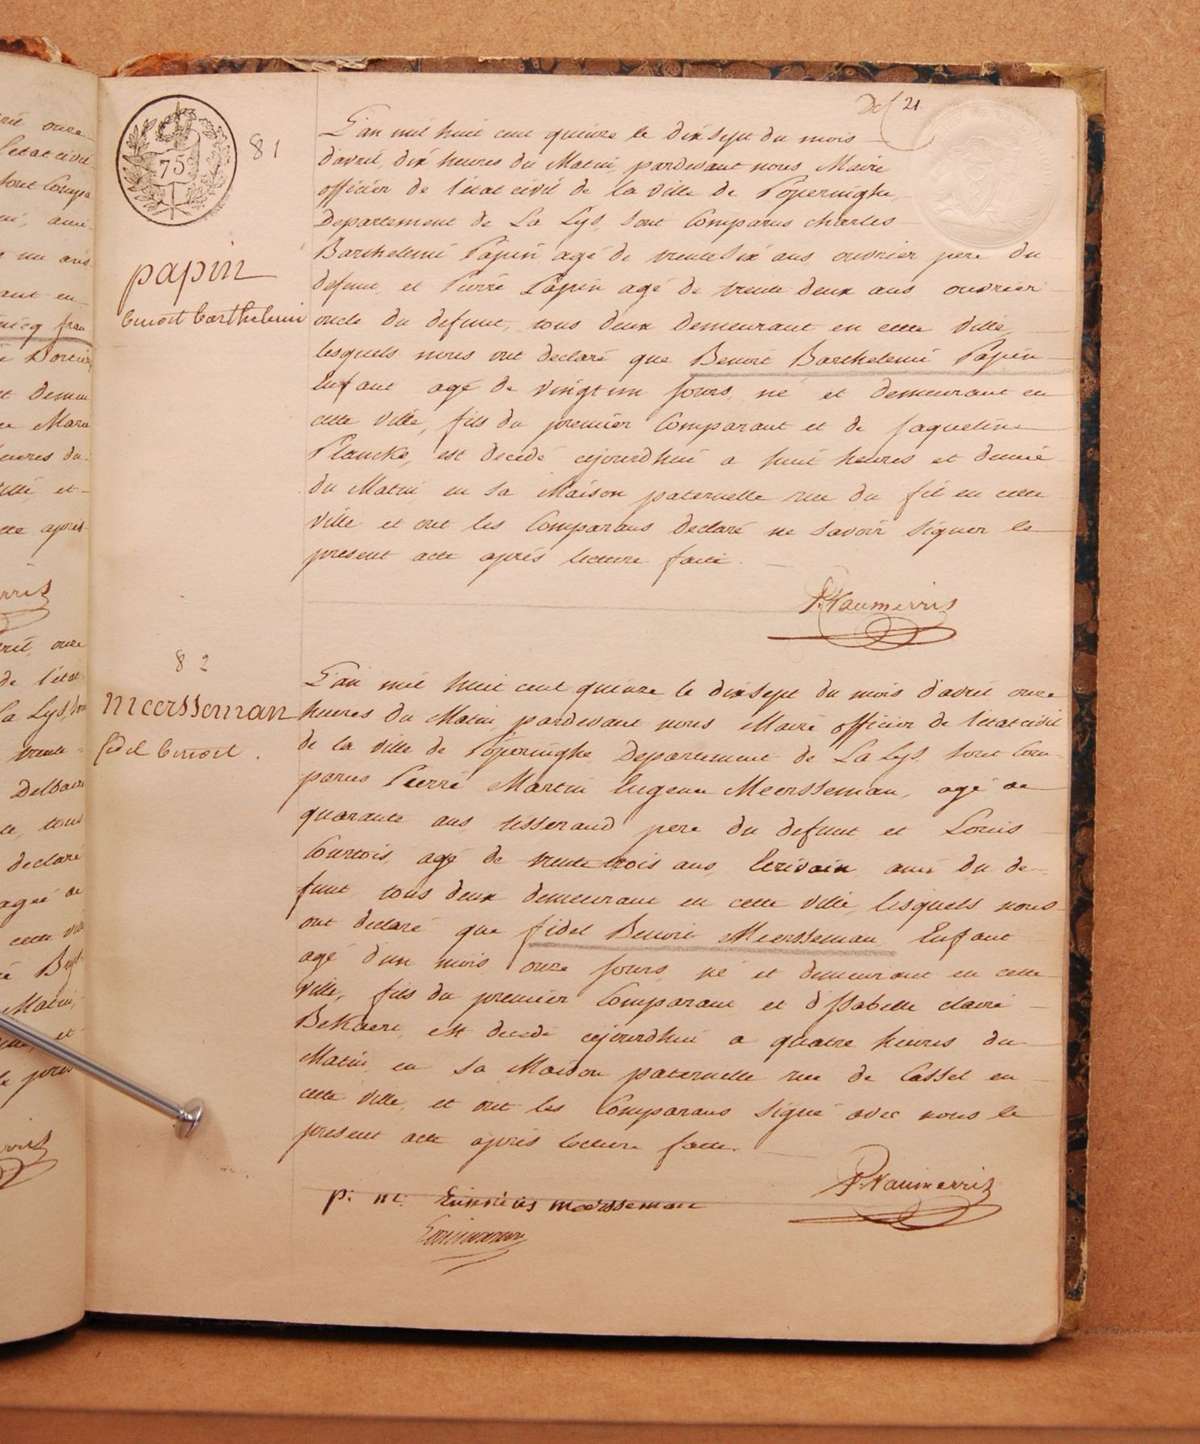 21
75
81
L'an mil huit cent quinze le dix sept du mois
d'avril dix heures du Matin, pardevant nous Maire
officier de l'état civil de la ville de Poperinghe
Departement de La Lys, sont Comparus Charles
Barthelemi Papin agé de trente six ans ouvrier pere du
defunt, et Pierre Papin agé de trente deux ans ouvrier
oncle du defunt, tous deux demeurant en cette ville,
lesquels nous ont declaré que Benoit Barthelemi Papin
Enfant agé de vingt un jours, né et demeurant en
cette ville, fils du premier Comparant et de Jaqueline
Plancke, est decedé cejourdhui a huit heures et demie
du Matin en sa Maison paternelle rue du fil en cette
ville et ont les Comparans declaré ne savoir signer le
present acte après lecture faite.
papin
benoit barthelemi
82
L'an mil huit cent quinze le dix sept du mois d'avril onze
heures du Matin pardevant nous Maire officier de l'état civil
de la ville de Poperinghe Departement de La Lys, sont Com-
parus Pierre Martin Eugene Meersseman, agé de
quarante ans tisserand pere du defunt et Louis
Courtois agé de trente trois ans, Ecrivain ami du de-
funt tous deux demeurant en cette ville, lesquels nous
ont declaré que fidel Benoit Meersseman Enfant
agé d'un mois onze jours, né et demeurant en cette
ville, fils du premier Comparant et d'Isabelle Claire
Bekaert, est decedé cejourdhui a quatre heures du
Matin en sa Maison paternelle rue de Cassel en
cette ville, et ont les Comparans signé avec nous le
present acte après lecture faite.
meersseman
fidel benoit.
p: m: meersseman